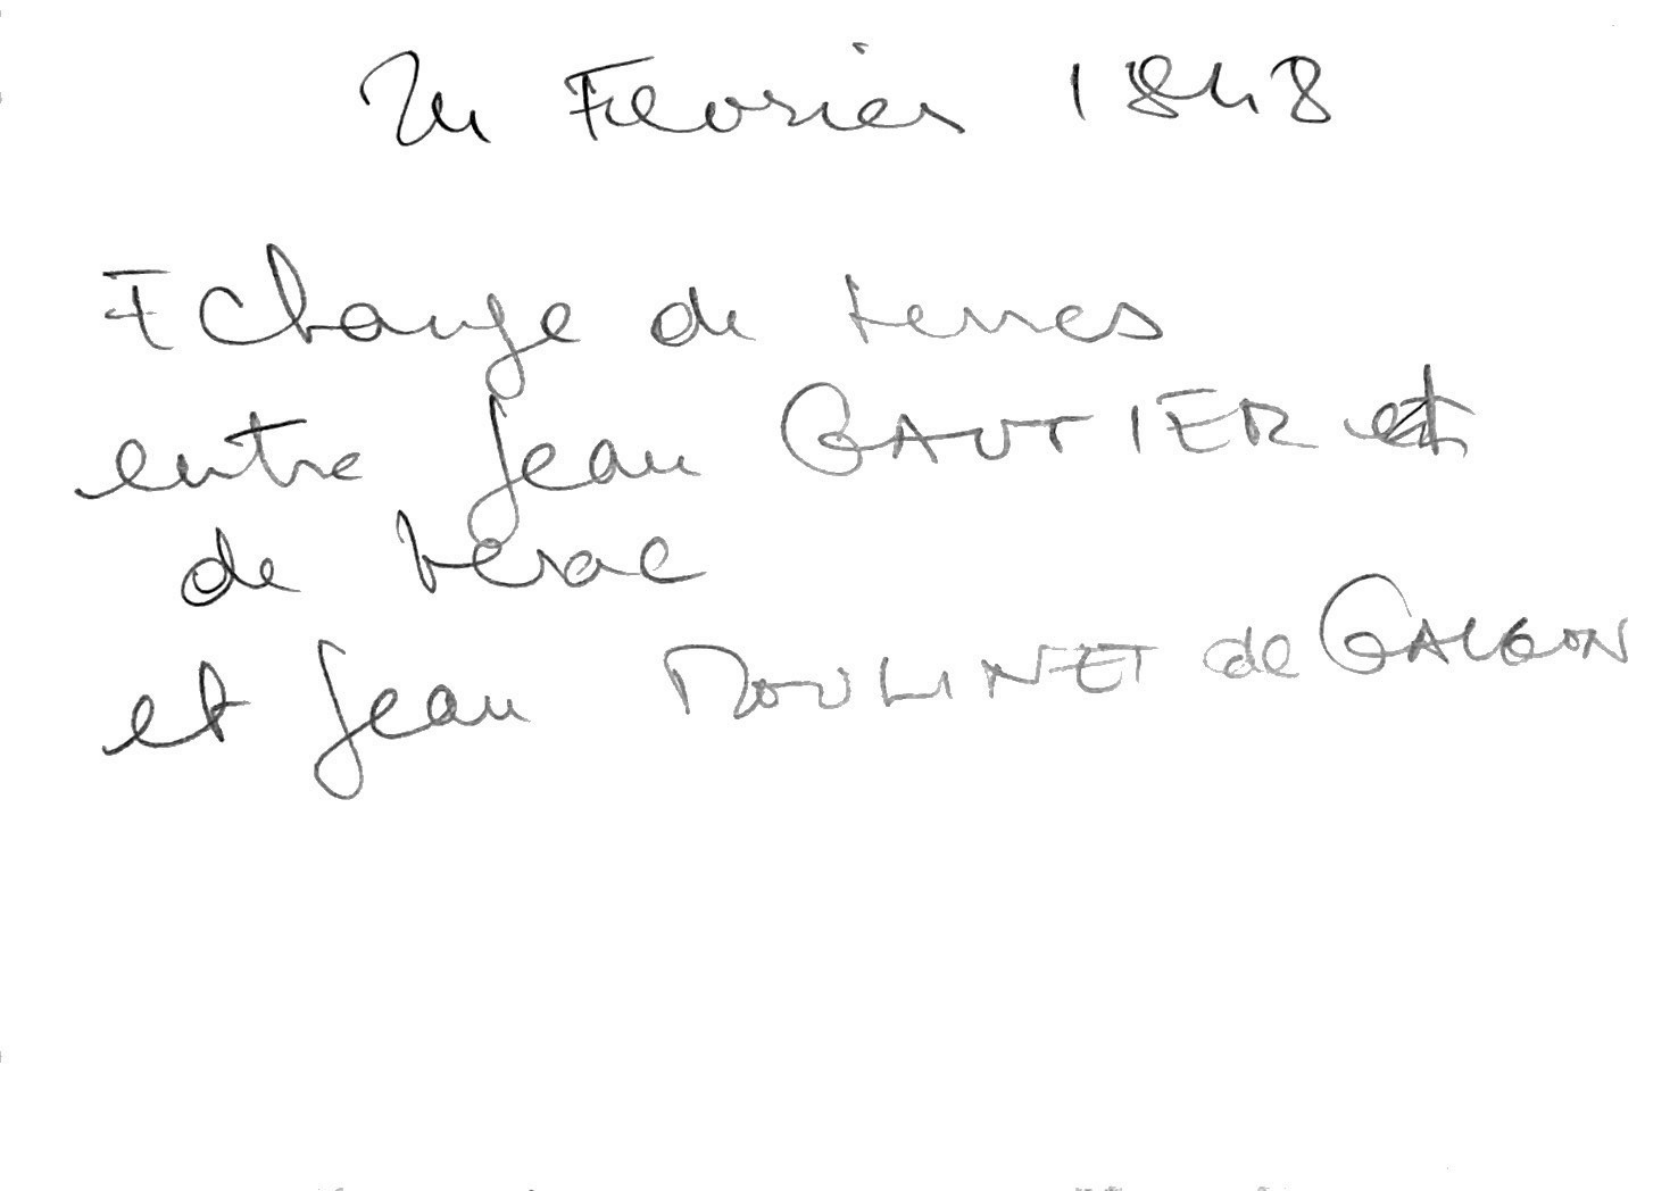 24 Fevrier 1848
Echange de terres
entre Jean GAUTIER et
de Verac
et Jean MOULINET de GALGON